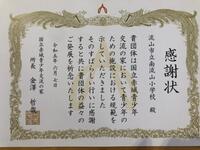 感謝状
流山市立南流山小学校 殿
貴団体は国立赤城青少年
交流の家において青少年の
ための施設における規範を
示していただきました
そのすばらしい行いに感謝
すると共に貴団体の益々の
ご発展を祈念いたします
令和五年六月七日
国立赤城青少年交流の家
所長 金澤 哲